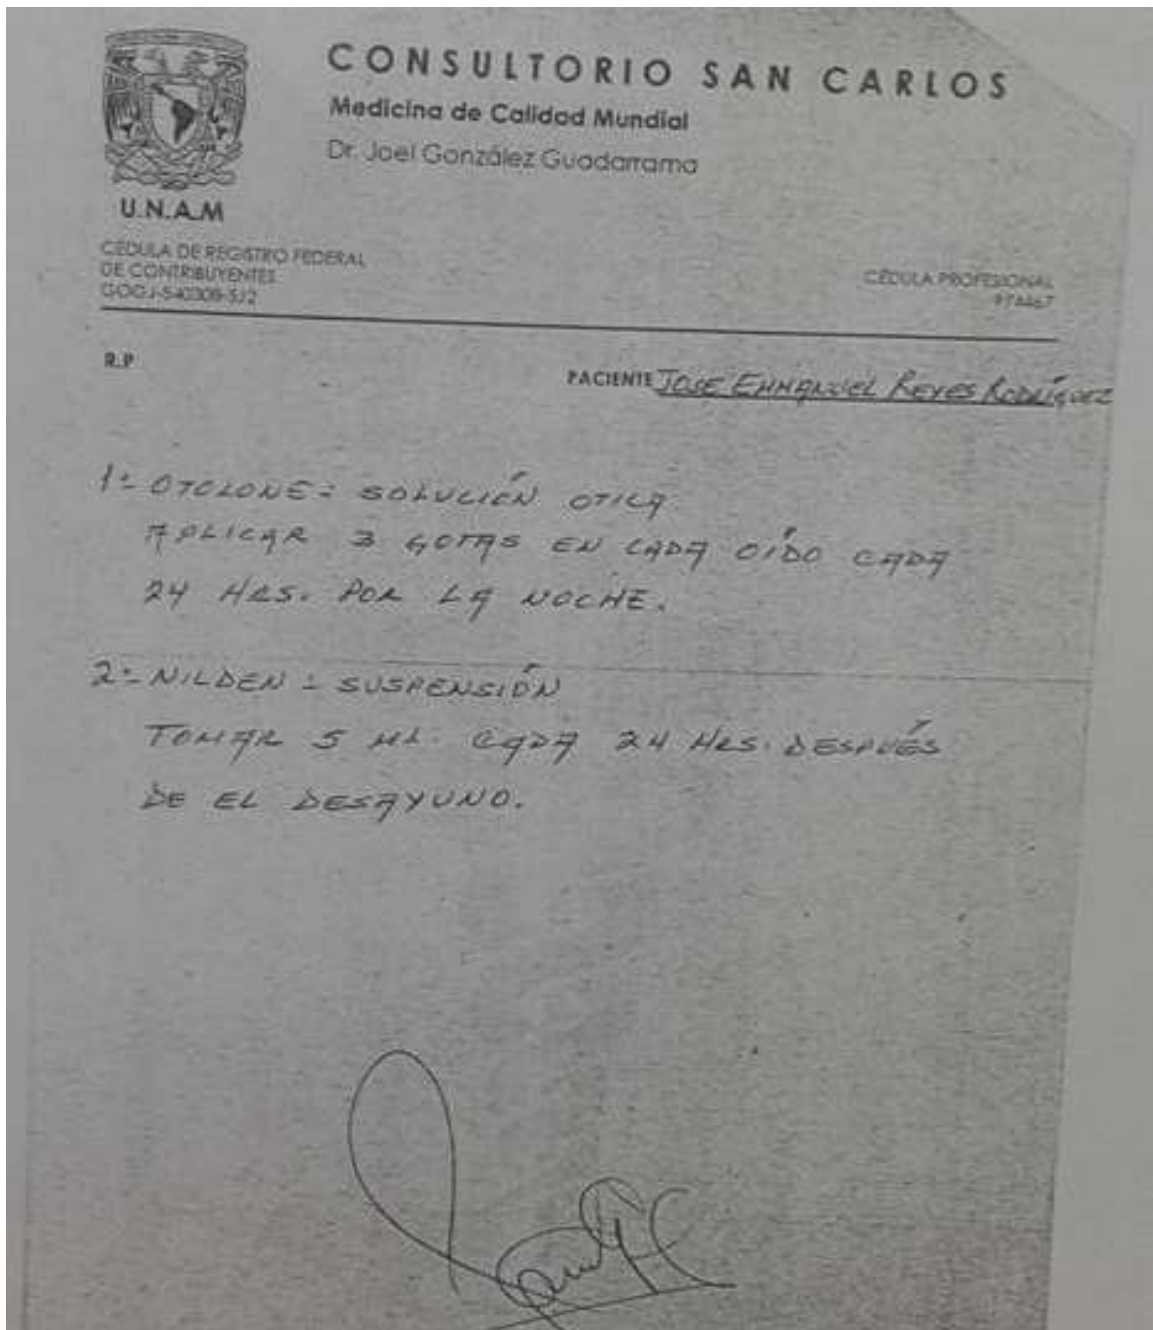 CONSULTORIO SAN CARLOS
Medicina de Calidad Mundial
Dr. Joel González Guadarrama
U.N.A.M
CÉDULA DE REGISTRO FEDERAL
DE CONTRIBUYENTES
CÉDULA PROFESIONAL
R.P
PACIENTE JOSE EMMANUEL REYES RODRÍGUEZ
1.- OTOLONE: SOLUCIÓN OTICA
APLICAR 3 GOTAS EN CADA OÍDO CADA
24 HRS. POR LA NOCHE.
2.- NILDEN: SUSPENSIÓN
TOMAR 5 ML. CADA 24 HRS. DESPUÉS
DE EL DESAYUNO.